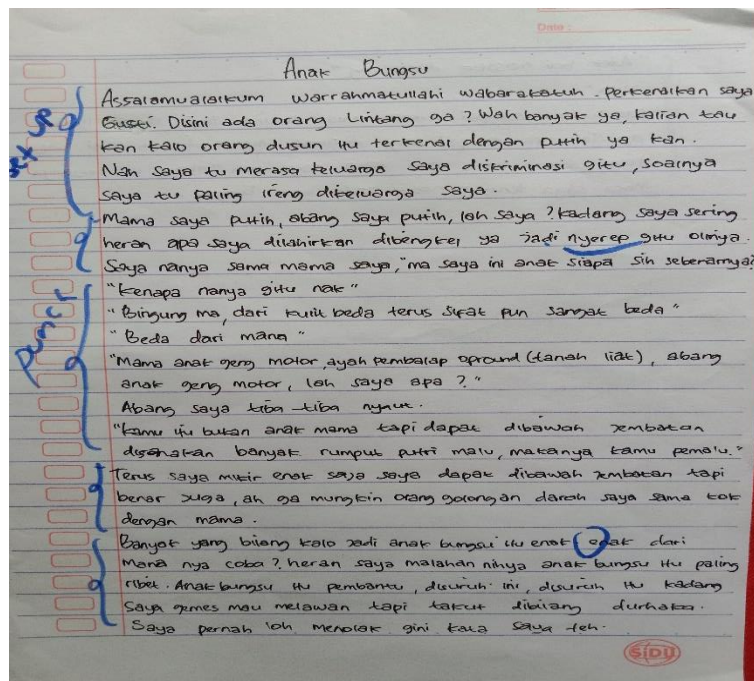 Date :
Anak Bungsu
Assalamualaikum warrahmatullahi wabarakatuh. Perkenalkan saya
Gusti. Disini ada orang Lintang ga? Wah banyak ya, kalian tau
kan kalo orang dusun itu terkenal dengan putih ya kan.
Nah saya tu merasa keluarga saya diskriminasi gitu, soalnya
saya tu paling ireng dikeluarga saya.
Mama saya putih, abang saya putih, lah saya? kadang saya sering
heran apa saya dilahirkan dibengkel ya jadi nyerep gitu olinya.
Saya nanya sama mama saya, "ma saya ini anak siapa sih sebenarnya
"kenapa nanya gitu nak"
"Bingung ma, dari kulit beda terus sifat pun sangat beda"
"Beda dari mana"
"Mama anak geng motor, ayah pembalap opround (tanah liat), abang
anak geng motor, lah saya apa?"
Abang saya tiba-tiba nyaut.
"kamu itu bukan anak mama tapi dapat dibawah jembatan
disanakan banyak rumput putri malu, makanya kamu pemalu."
Terus saya mikir enak saja saya dapat dibawah jembatan tapi
benar juga, ah ga mungkin orang golongan darah saya sama kok
dengan mama.
Banyak yang bilang kalo jadi anak bungsu itu enak, enak dari
mana nya coba? heran saya malahan nihya anak bungsu itu paling
ribet. Anak bungsu itu pembantu, disuruh ini, disuruh itu kadang
saya gemes mau melawan tapi takut dibilang durhaka.
Saya pernah loh menolak gini kata saya teh.
set up
punch
SIDU